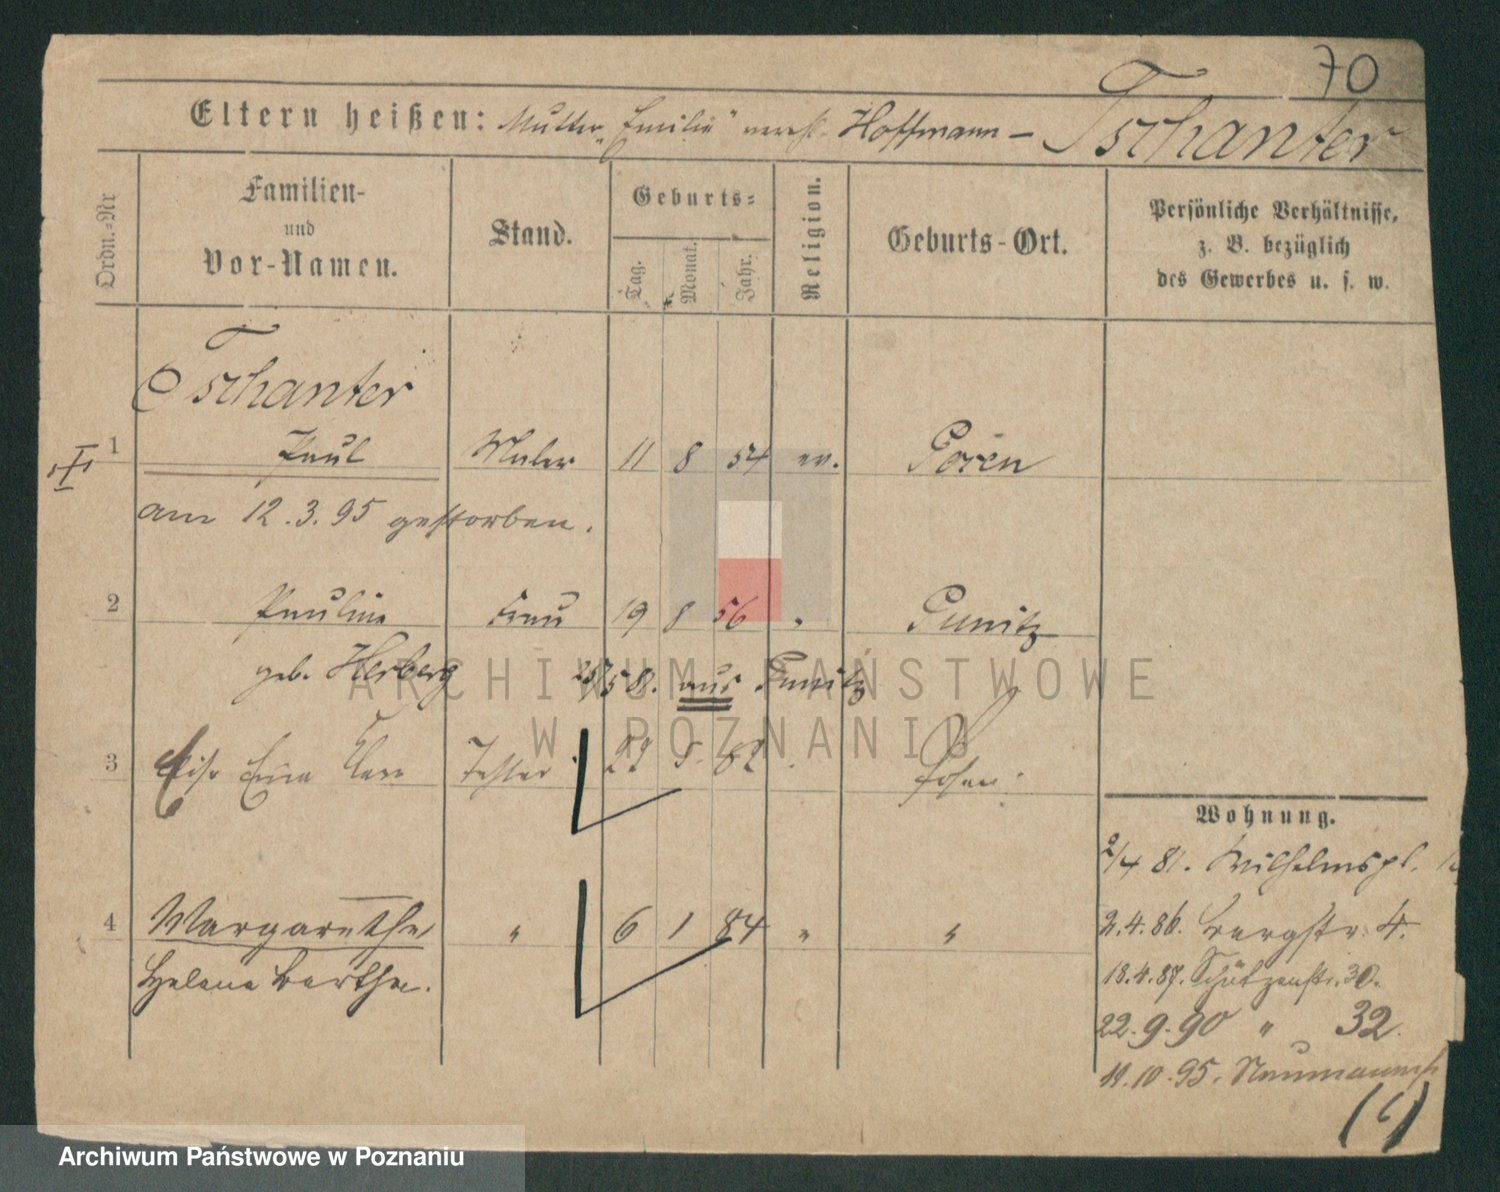 70
Eltern heißen: Mutter „Emilie" verst. Hoffmann – Tschanter
Ordn.-Nr
Familien-
und
Vor-Namen.
Stand.
Geburts-
Tag.
Monat.
Jahr.
Religion.
Geburts-Ort.
Persönliche Verhältnisse,
z. B. bezüglich
des Gewerbes u. s. w.
Tschanter
1 Paul Maler 11 8 54 ev.
am 12.3.95 gestorben.
2 Pauline Frau 19 8 56 "
geb. Herberg 58. aus
3 Tochter 82 Posen.
Wohnung.
2/4 81. Wilhelmspl.
4 Margarethe " 6 1 84 " "
Helene Berthe.
2.4.86. Bergstr. 4.
18.4.87. Schützenstr. 30.
22.9.90 " 32.
10.95. Naumannstr
ARCHIWUM PAŃSTWOWE
W POZNANIU
Archiwum Państwowe w Poznaniu